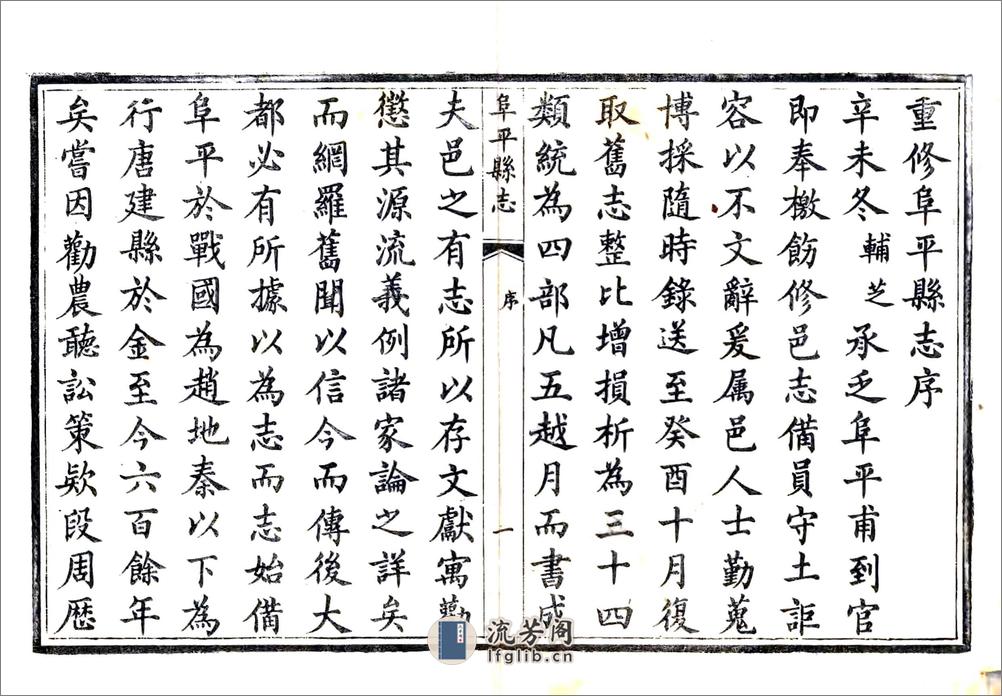 重修阜平縣志序
辛未冬輔芝承乏阜平甫到官
即奉檄飭修邑志備員守土詎
容以不文辭爰属邑人士勤蒐
博採隨時錄送至癸酉十月復
取舊志整比增損析為三十四
類統為四部凡五越月而書成
阜平縣志
序
一
夫邑之有志所以存文獻寓勸
懲其源流義例諸家論之詳矣
而網羅舊聞以信今而傳後大
都必有所據以為志而志始備
阜平於戰國為趙地秦以下為
行唐建縣於金至今六百餘年
矣嘗因勸農聽訟策欵段周歴
流芳阁
lfglib.cn